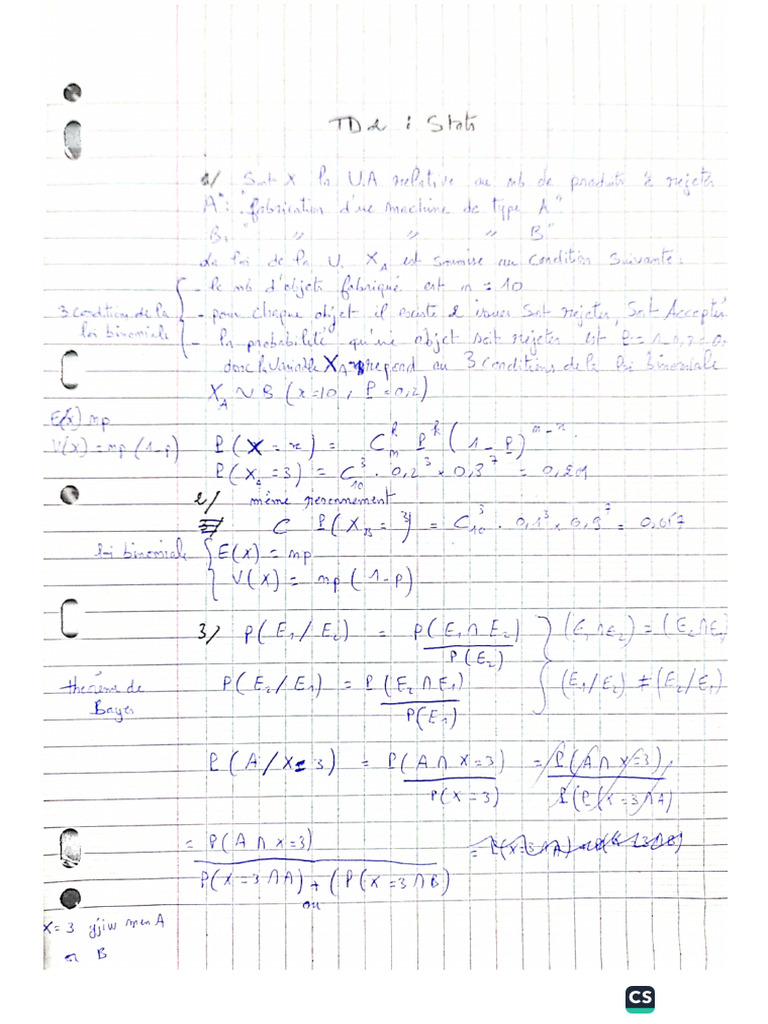 TD 2 : Stats
1/ Soit X la V.A relative au nb de produits à rejeter
A": "fabrication d'une machine de type A"
B: " " " " B"
La loi de la V. X_A est soumise au condition suivante:
- le nb d'objets fabriqué est n = 10
3 condition de la - pour chaque objet il existe 2 issues Soit rejeter, Soit Accepter
loi binomiale - la probabilité qu'une objet soit rejeter est P = 1-0,
donc la variable X_A repend au 3 conditions de la loi binomiale
X_A ~ B (x=10, P=0,2)
E(x) np
V(x) = np (1-p) P(X = x) = C_n^k P^k (1-P)^{n-x}
P(X_A = 3) = C_10^3 . 0,2^3 x 0,8^7 = 0,201
2/ même raisonnement
C P(X_B = 3) = C_10^3 . 0,1^3 x 0,9^7 = 0,057
loi binomiale E(X) = np
V(X) = np (1-p)
3/ P(E1/E2) = P(E1 ∩ E2) / P(E2) (E1 ∩ E2) = (E2 ∩ E1)
théorème de Bayes P(E2/E1) = P(E2 ∩ E1) / P(E1) (E1/E2) ≠ (E2/E1)
P(A/X=3) = P(A ∩ X=3) / P(X=3) = P(A ∩ X=3) / P(P(X=3 ∩ A)
= P(A ∩ X=3) / P(X=3 ∩ A) + (P(X=3 ∩ B)
ou
X=3 yjiw men A
B
CS